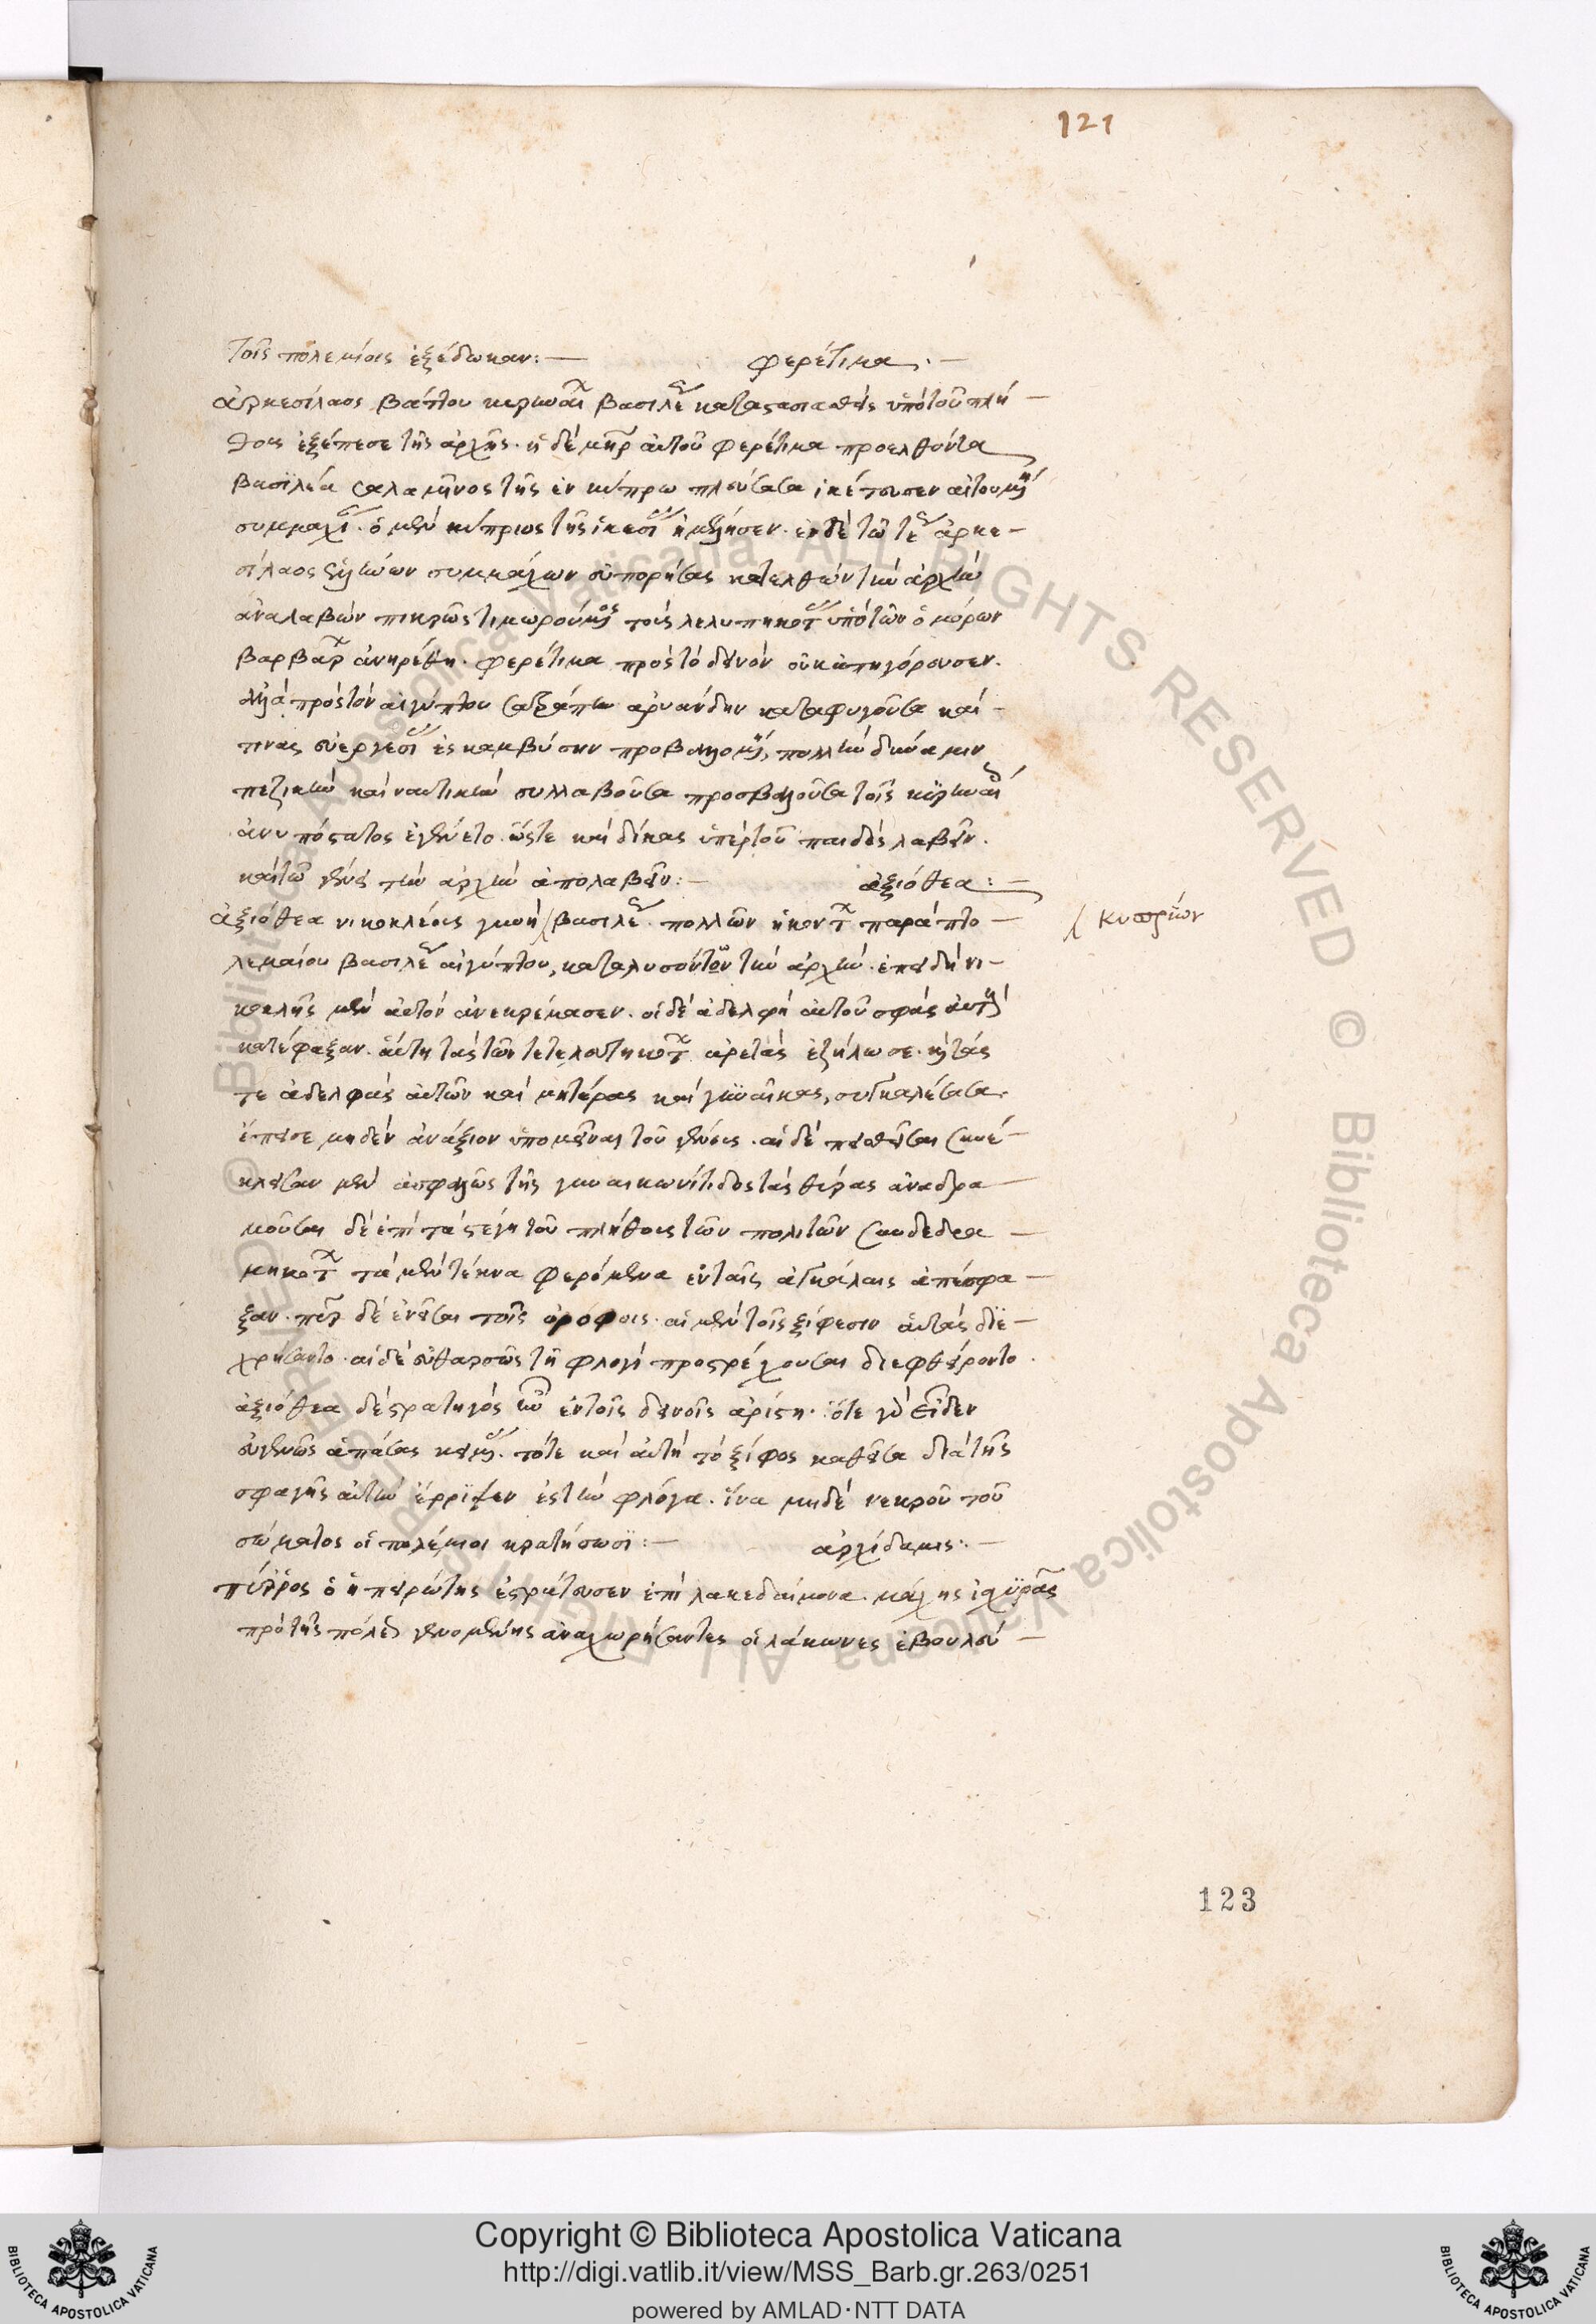 121
τοῖς πολεμίοις ἐξέδωκαν:— φερέτιμα.—
ἀρκεσίλαος βάττου κυρηναί βασιλεὺ κατασταθεὶς ὑπὸ τοῦ πλή-
θους ἐξέπεσε τῆς ἀρχῆς. ἡ δὲ μηρ αὐτοῦ φερέτιμα προελθόντα
βασιλέα σαλαμῖνος τῆς ἐν κύπρω πλεύσασα ἱκέτευσεν αἰτουμένη
συμμαχί. ὁ μὲν κύπριος τῆς ἱκεσί ἠμέλησεν. ἐν δὲ τῶ τέ ἀρκε-
σίλαος ἑλλήνων συμμάχων εὐπορήσας κατελθὼν τὴν ἀρχὴν
ἀναλαβὼν πικρῶς τιμωρούμενος τοὺς λελυπηκότ ὑπὸ τῶν ὁμόρων
βαρβάρ ἀνηρέθη. φερέτιμα πρὸς τὸ δεινὸν οὐκ ἀπηγόρευσεν.
ἀλλὰ πρὸς τὸν αἰγύπτου σατράπην ἀρυάνδην καταφυγοῦσα καί
τινας εὐεργεσί ἐς καμβύσην προβαλλομένη, πολλὴν δύναμιν
πεζικὴν καὶ ναυτικὴν συλλαβοῦσα προσβαλοῦσα τοῖς κυρηναί
ἀνυπόστατος ἐγένετο. ὥστε καὶ δίκας ὑπὲρ τοῦ παιδὸς λαβεῖν.
καὶ τῶ γένει τὴν ἀρχὴν ἀπολαβεῖν:— ἀξιόθεα:—
ἀξιόθεα νικοκλέους γυνὴ βασιλέ. πολλῶν ἡκόντ παρὰ πτο-
κυπρίων
λεμαίου βασιλέ αἰγύπτου, καταλυσόντων τὴν ἀρχήν. ἐπειδὴ νι-
κοκλῆς μὲν αὐτὸν ἀνεκρέμασεν. οἱ δὲ ἀδελφοὶ αὐτοῦ σφᾶς αὐτ
κατέσφαξαν. αὕτη τὰς τῶν τετελευτηκότ ἀρετὰς ἐζήλωσε. καὶ τάς
τε ἀδελφὰς αὐτῶν καὶ μητέρας καὶ γυναῖκας, συγκαλέσασα.
ἔπεισε μηδὲν ἀνάξιον ὑπομεῖναι τοῦ γένους. αἱ δὲ πεισθεῖσαι συνέ-
κλεισαν μὲν ἀσφαλῶς τῆς γυναικωνίτιδος τὰς θύρας ἀναδρα-
μοῦσαι δὲ ἐπὶ τὰ στέγη τοῦ πλήθους τῶν πολιτῶν συνδεδρα-
μηκότ τὰ μὲν τέκνα φερόμενα ἐν ταῖς ἀγκάλαις ἀπέσφα-
ξαν. πῦρ δὲ ἐνεῖσαι τοῖς ὀρόφοις. αἱ μὲν τοῖς ξίφεσιν αὑτὰς διε-
χρήσαντο. αἱ δὲ εὐθαρσῶς τῆ φλογὶ προστρέχουσαι διεφθείροντο.
ἀξιόθεα δὲ στρατηγὸς ἦν ἐν τοῖς δεινοῖς ἀρίστη. ὅτε γοῦν εἶδεν
εὐγενῶς ἁπάσας κειμ. τότε καὶ αὐτὴ τὸ ξίφος καθεῖσα διὰ τῆς
σφαγῆς αὑτὴν ἔρριψεν ἐς τὴν φλόγα. ἵνα μηδὲ νεκροῦ τοῦ
σώματος οἱ πολέμιοι κρατήσωσι:— ἀρχίδαμις:—
πύρρος ὁ ἠπειρώτης ἐστράτευσεν ἐπὶ λακεδαίμονα. μάχης ἰσχυρᾶς
πρὸ τῆς πόλεως γενομένης ἀναχωρήσαντες οἱ λάκωνες ἐβουλεύ-
123
Copyright © Biblioteca Apostolica Vaticana
http://digi.vatlib.it/view/MSS_Barb.gr.263/0251
powered by AMLAD·NTT DATA